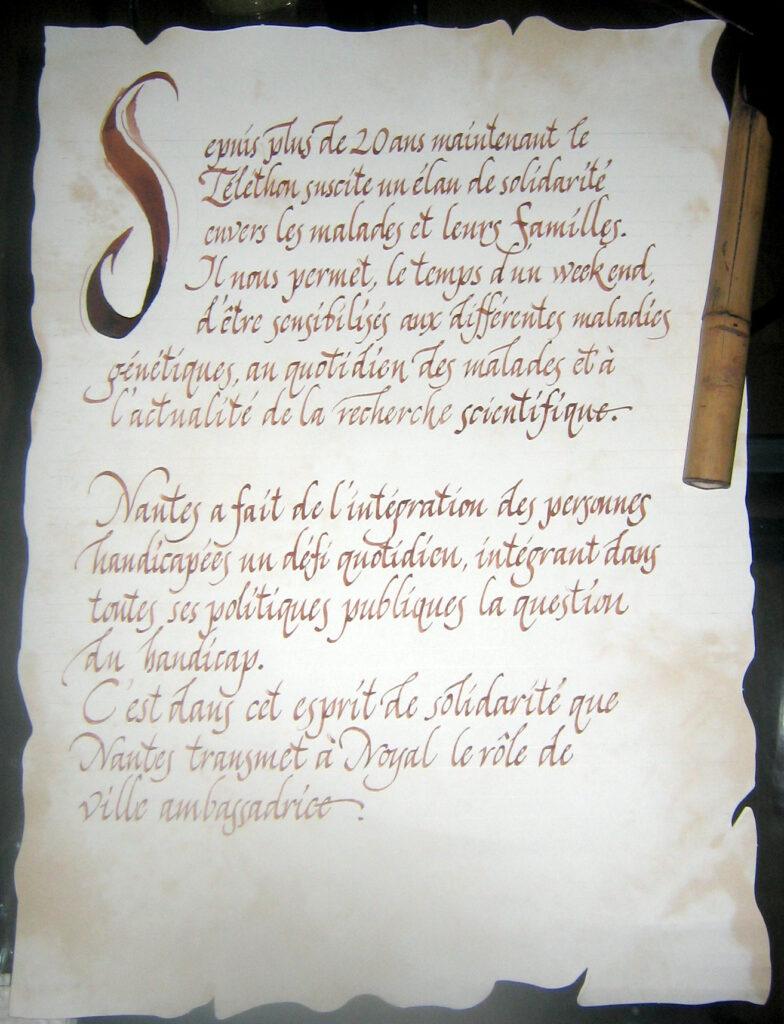 Depuis plus de 20 ans maintenant le
Téléthon suscite un élan de solidarité
envers les malades et leurs familles.
Il nous permet, le temps d'un week end,
d'être sensibilisés aux différentes maladies
génétiques, au quotidien des malades et à
l'actualité de la recherche scientifique.
Nantes a fait de l'intégration des personnes
handicapées un défi quotidien, intégrant dans
toutes ses politiques publiques la question
du handicap.
C'est dans cet esprit de solidarité que
Nantes transmet à Noyal le rôle de
ville ambassadrice.